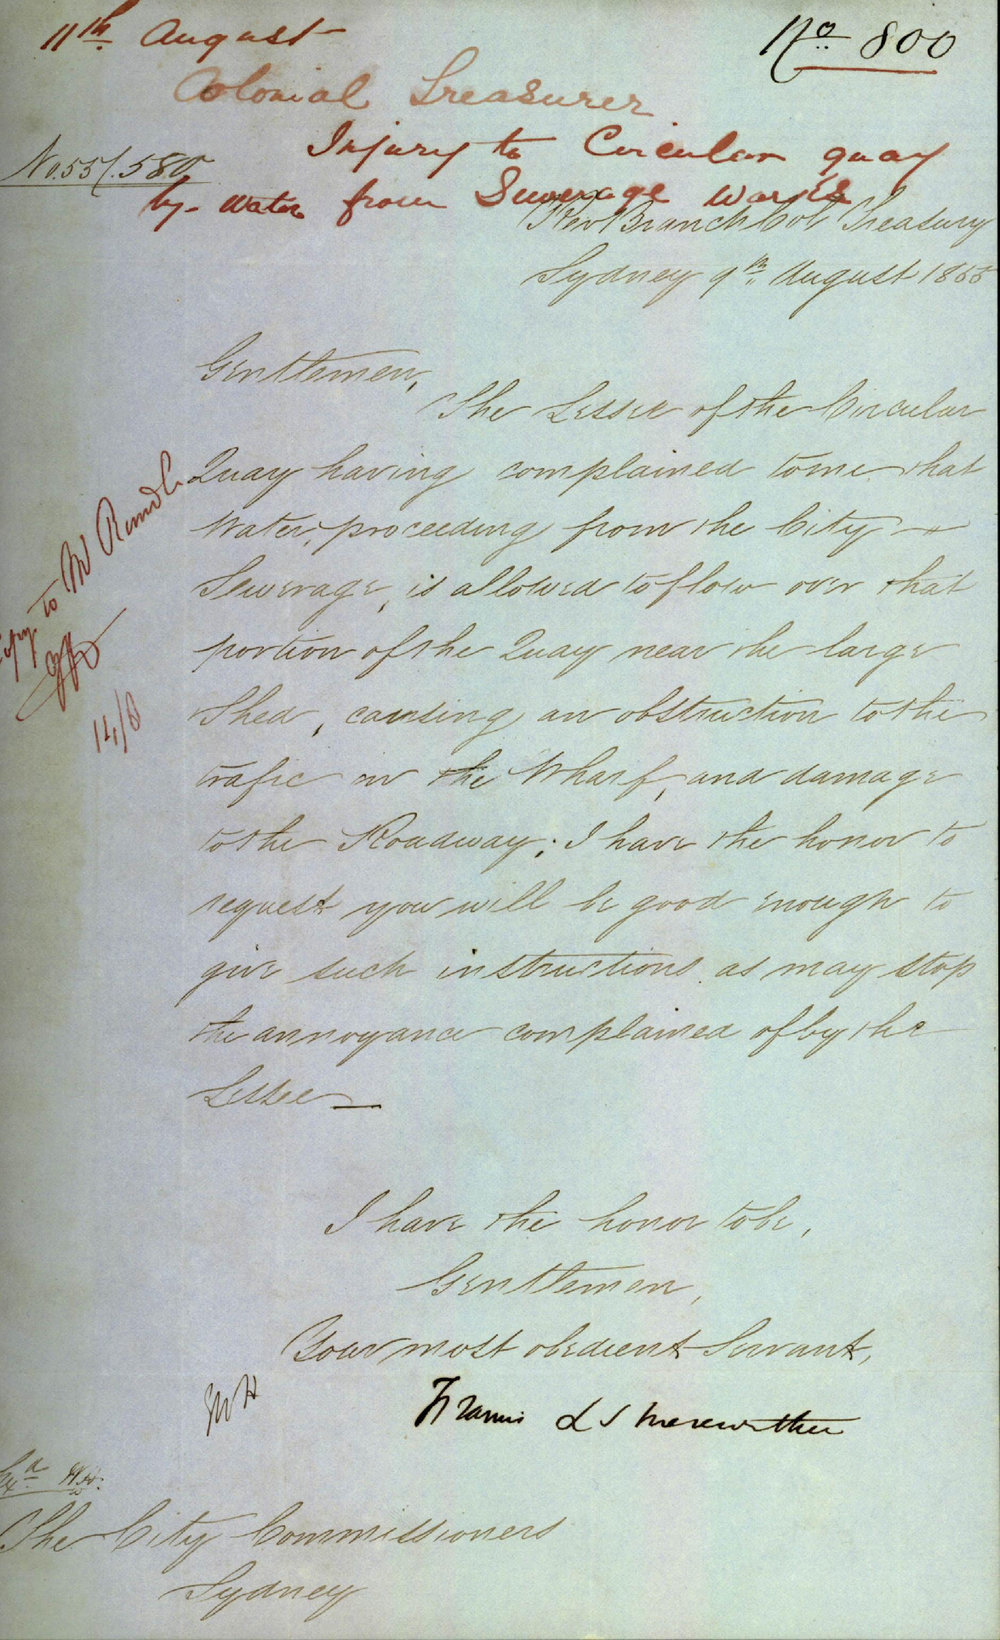 11th August
No 800
Colonial Treasurer
Injury to Circular quay
No. 55/.580
by water from Sewerage Works
Rev Branch Col Treasury
Sydney 9th August 1855
Gentlemen,
The Lessee of the Circular
Quay having complained to me that
Water, proceeding from the City
Sewerage, is allowed to flow over that
portion of the Quay near the large
Shed, causing an obstruction to the
trafic on the Wharf, and damage
to the Roadway; I have the honor to
request you will be good enough to
give such instructions as may stop
the annoyance complained of by the
Lessee
Copy to Mr Rundle
14/8
I have the honor to be,
Gentlemen,
Your most obedient Servant,
Francis L S Merewether
The City Commissioners
Sydney